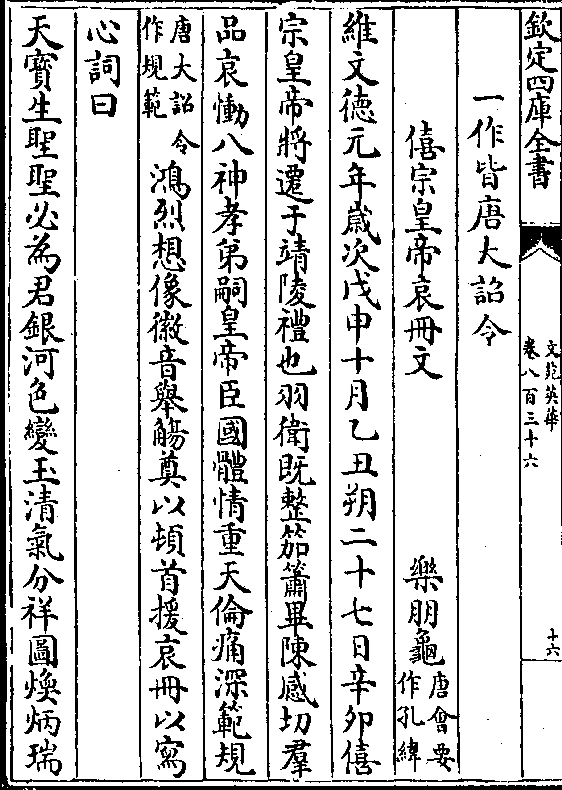 欽定四庫全書
文苑英華
卷八百三十六
十六
一作皆唐大詔令
僖宗皇帝哀冊文
樂朋龜
唐會要
作孔緯
維文德元年歲次戊申十月乙丑朔二十七日辛卯僖
宗皇帝將遷于靖陵禮也羽衛既整笳簫畢陳感切羣
品哀慟八神孝弟嗣皇帝臣國體情重天倫痛深範規
唐大詔令
作規範
鴻烈想像徽音舉觴奠以頓首援哀冊以寫
心詞曰
天寶生聖聖必為君銀河色變玉清氣分祥圖煥炳瑞